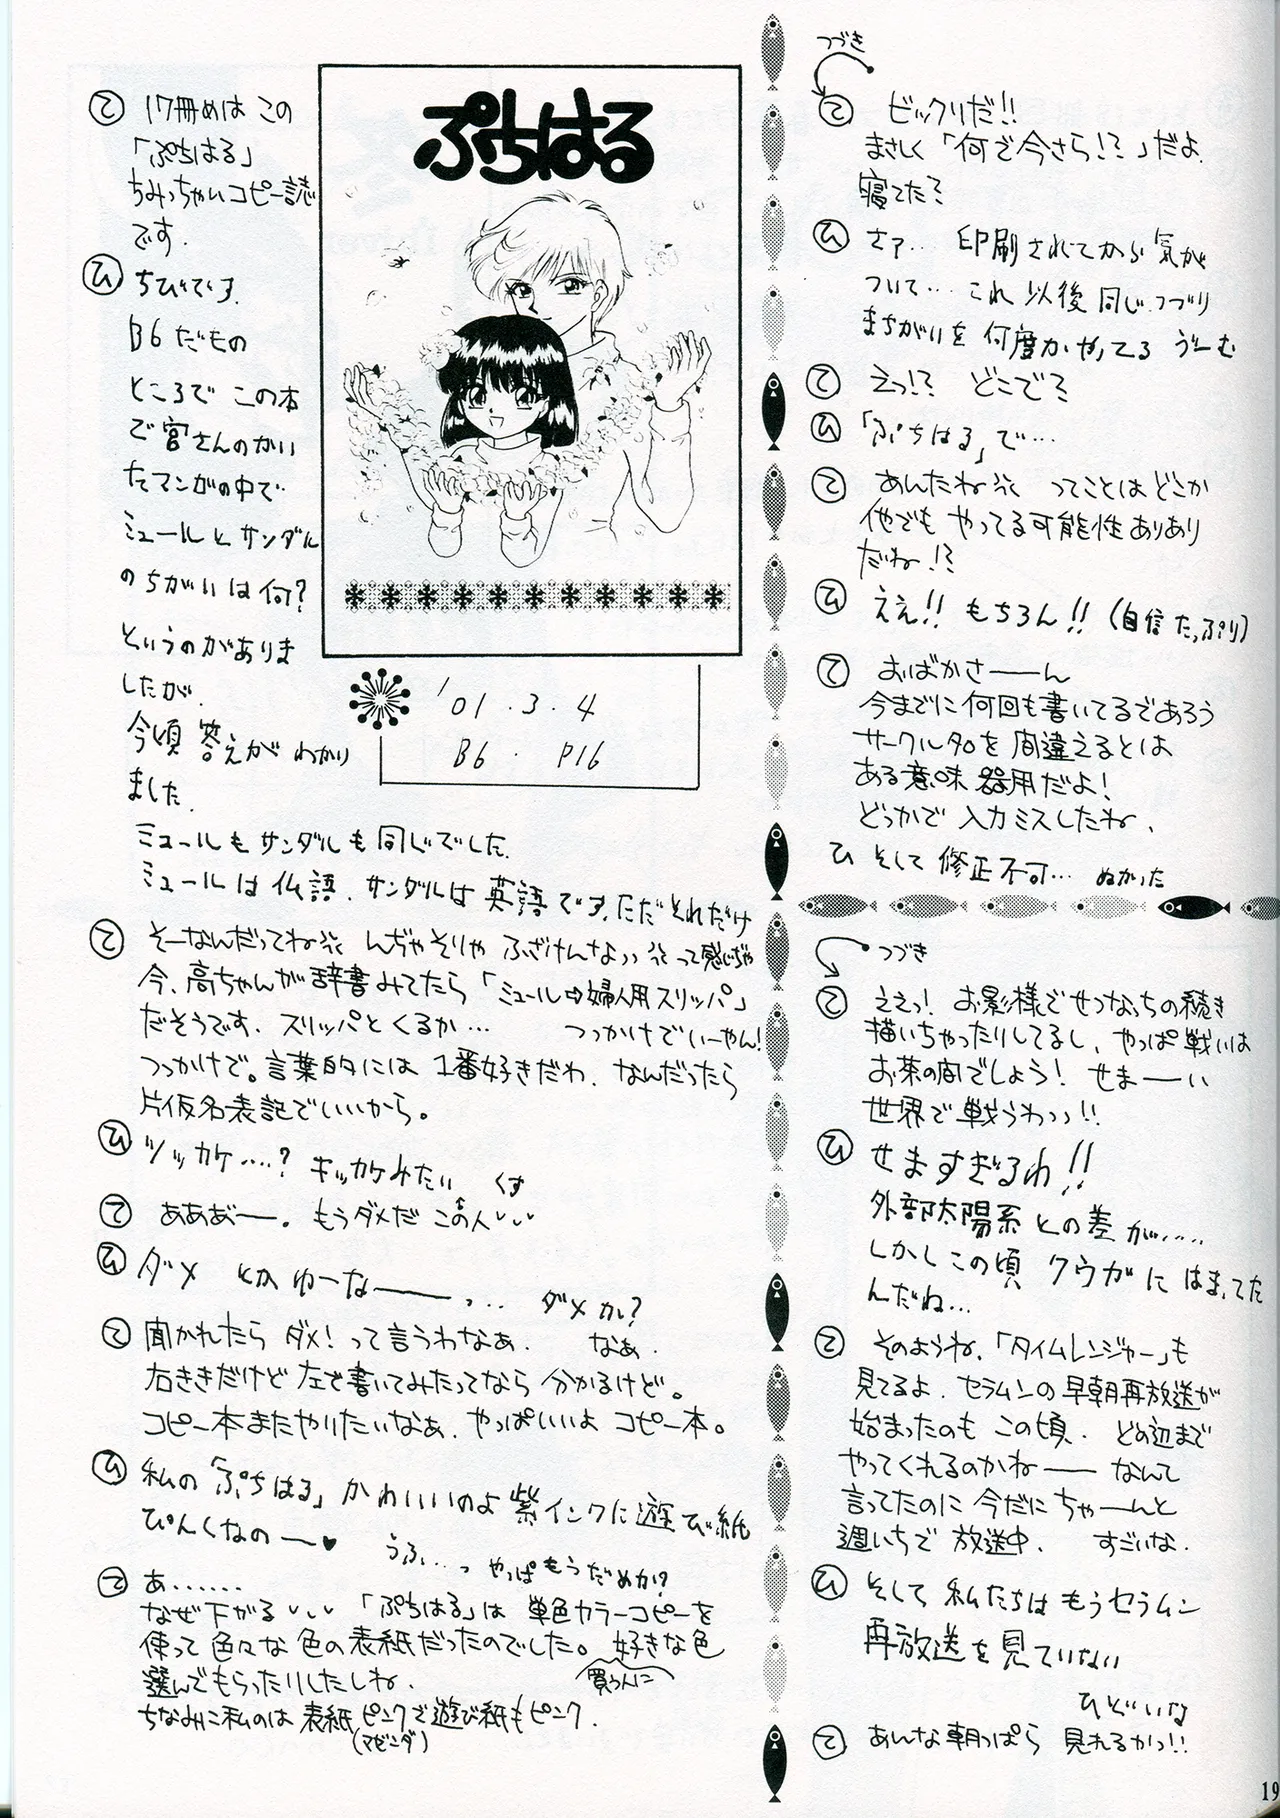 て 17冊めは この
「ぷちはる」
ちみっちゃいコピー誌
です.
ひ ちびです.
B6だもの
ところで この本
で宮さんのかい
たマンガの中で
ミュールとサンダル
のちがいは何?
というのがありま
したが.
今頃 答えが わかり
ました.
ミュールもサンダルも同じでした.
ミュールは仏語、サンダルは英語です、ただそれだけ
ぷちはる
'01.3.4
B6. P16
て そーなんだってね んぢゃそりゃ ふざけんなッ って感じぢゃ
今、高ちゃんが辞書みてたら「ミュール⇨婦人用スリッパ」
だそうです. スリッパとくるか… つっかけでいーやん!
つっかけで。言葉的には1番好きだわ. なんだったら
片仮名表記でいいから。
ひ ツッカケ….? キッカケみたい くす
て あああ゛ー。もうダメだ この人
ひ ダメ とか ゆーなーーっ… ダメかい?
て 聞かれたら ダメ!って言うわなぁ. なぁ.
右ききだけど 左で書いてみたってなら 分かるけど。
コピー本またやりたいなぁ. やっぱいいよ コピー本。
ひ 私の「ぷちはる」かわいいのよ 紫インクに遊び紙
ぴんくなのー♥ うふ…っ やっぱもうだめか?
て あ……
なぜ下がる 「ぷちはる」は 単色カラーコピーを
使って 色々な 色の表紙だったのでした。好きな色
選んでもらったりしたしね. 買う人に
ちなみに私のは 表紙ピンクで遊び紙もピンク.
(マゼンダ)
つづき
て ビックリだ!!
まさしく「何で今さら!?」だよ.
寝てた?
ひ さァ… 印刷されてから気が
ついて… これ以後 同じつづり
まちがいを 何度かやってる うーむ
て えっ!? どこで?
ひ 「ぷちはる」で…
て あんたね ってことはどこか
他でも やってる可能性ありあり
だね!?
ひ ええ!! もちろん!! (自信たっぷり)
て おばかさーーん
今までに何回も書いてるであろう
サークル名を 間違えるとは
ある意味 器用だよ!
どっかで 入力ミスしたね、
ひ そして 修正不可… ぬかった
つづき
て ええっ! お影様でせつなっちの続き
描いちゃったりしてるし、やっぱ戦いは
お茶の間でしょう! せまーい
世界で戦うわッ!!
ひ せますぎるわ!!
外部太陽系との差が….
しかしこの頃 クウガに はまってた
んだね…
て そのようね.「タイムレンジャー」も
見てるよ. セラムンの早朝再放送が
始まったのも この頃. どの辺まで
やってくれるのかねーー なんて
言ってたのに 今だに ちゃーんと
週いちで 放送中. すごいな.
ひ そして 私たちは もうセラムン
再放送を見ていない
ひどいな
て あんな朝っぱら 見れるかっ!!
19